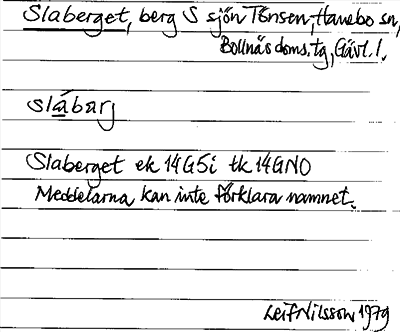 Slaberget, berg S sjön Tönsen, Hanebo sn,
Bollnäs doms. tg, Gävl. l.
slábarj
Slaberget ek 14G5i tk 14GNO
Meddelarna kan inte förklara namnet.
Leif Nilsson 1979